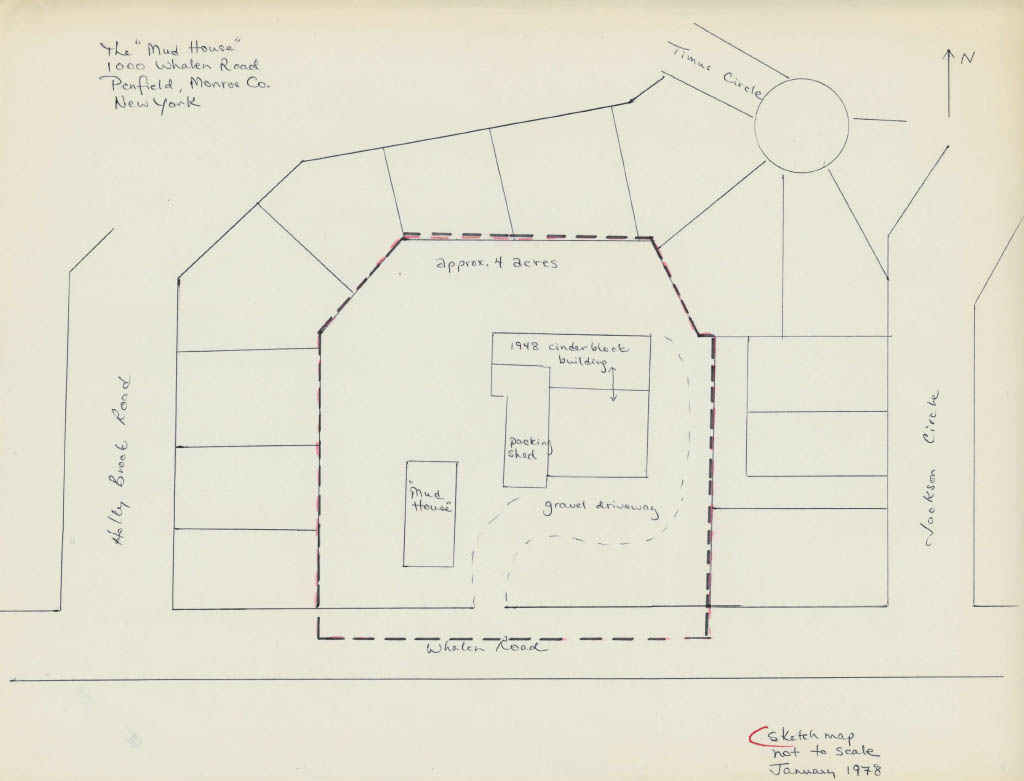 The "Mud House"
1000 Whalen Road
Penfield, Monroe Co.
New York
Timus Circle
N
approx. 4 acres
1948 cinderblock
building
packing
shed
"Mud
House"
gravel driveway
Holly Brook Road
Jackson Circle
Whalen Road
sketch map
not to scale
January 1978